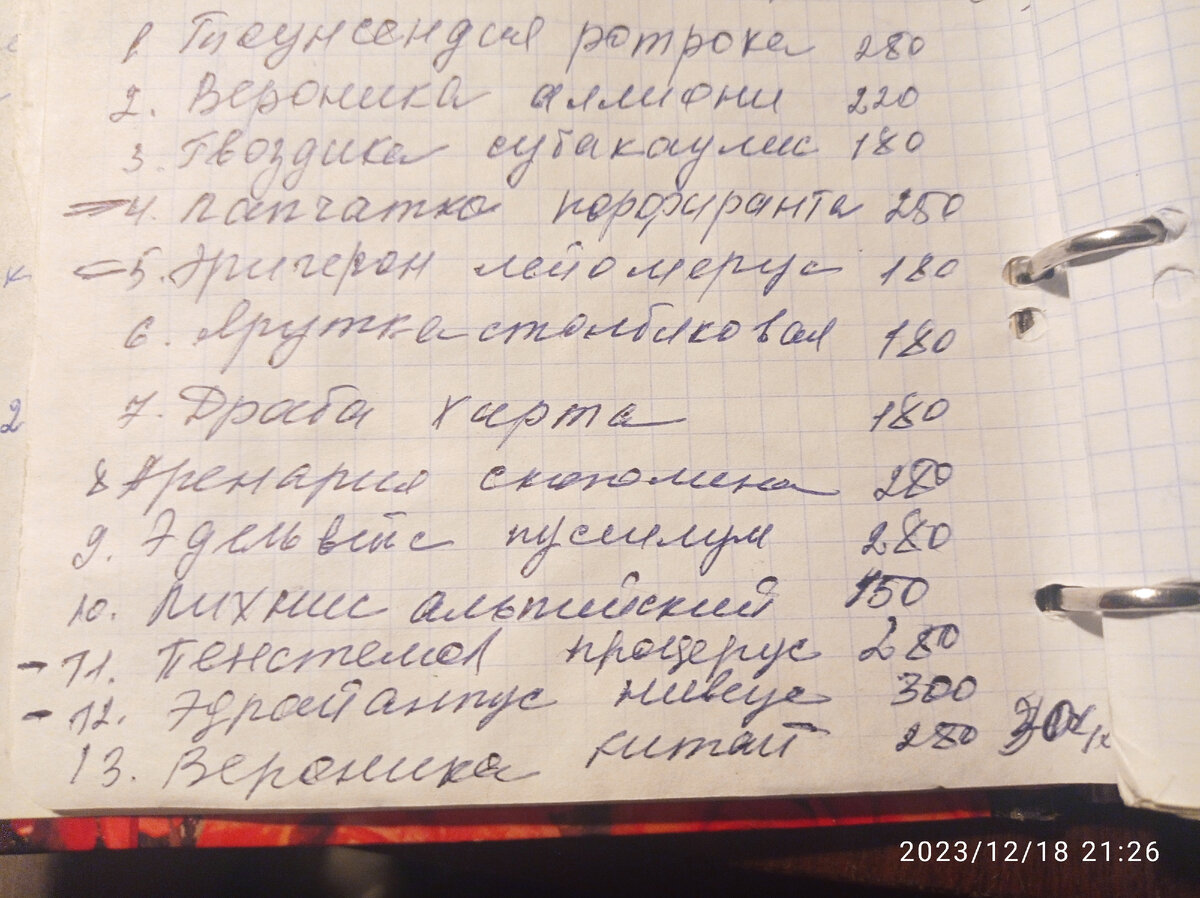 1. Тоунсендия ротрока 280
2. Вероника аллиони 220
3. Гвоздика субакаулис 180
4. Лапчатка порфиранта 250
5. Эригерон лейомерус 180
6. Ярутка столбиковая 180
7. Драба хирта 180
8 Аренария 280
9. Эдельвейс пусилум 280
10. Лихнис альпийский 150
- 11. Пенстемон процерус 280
- 12. Эдрайантус нивеус 300
13. Вероника китай 280
2
2023/12/18 21:26